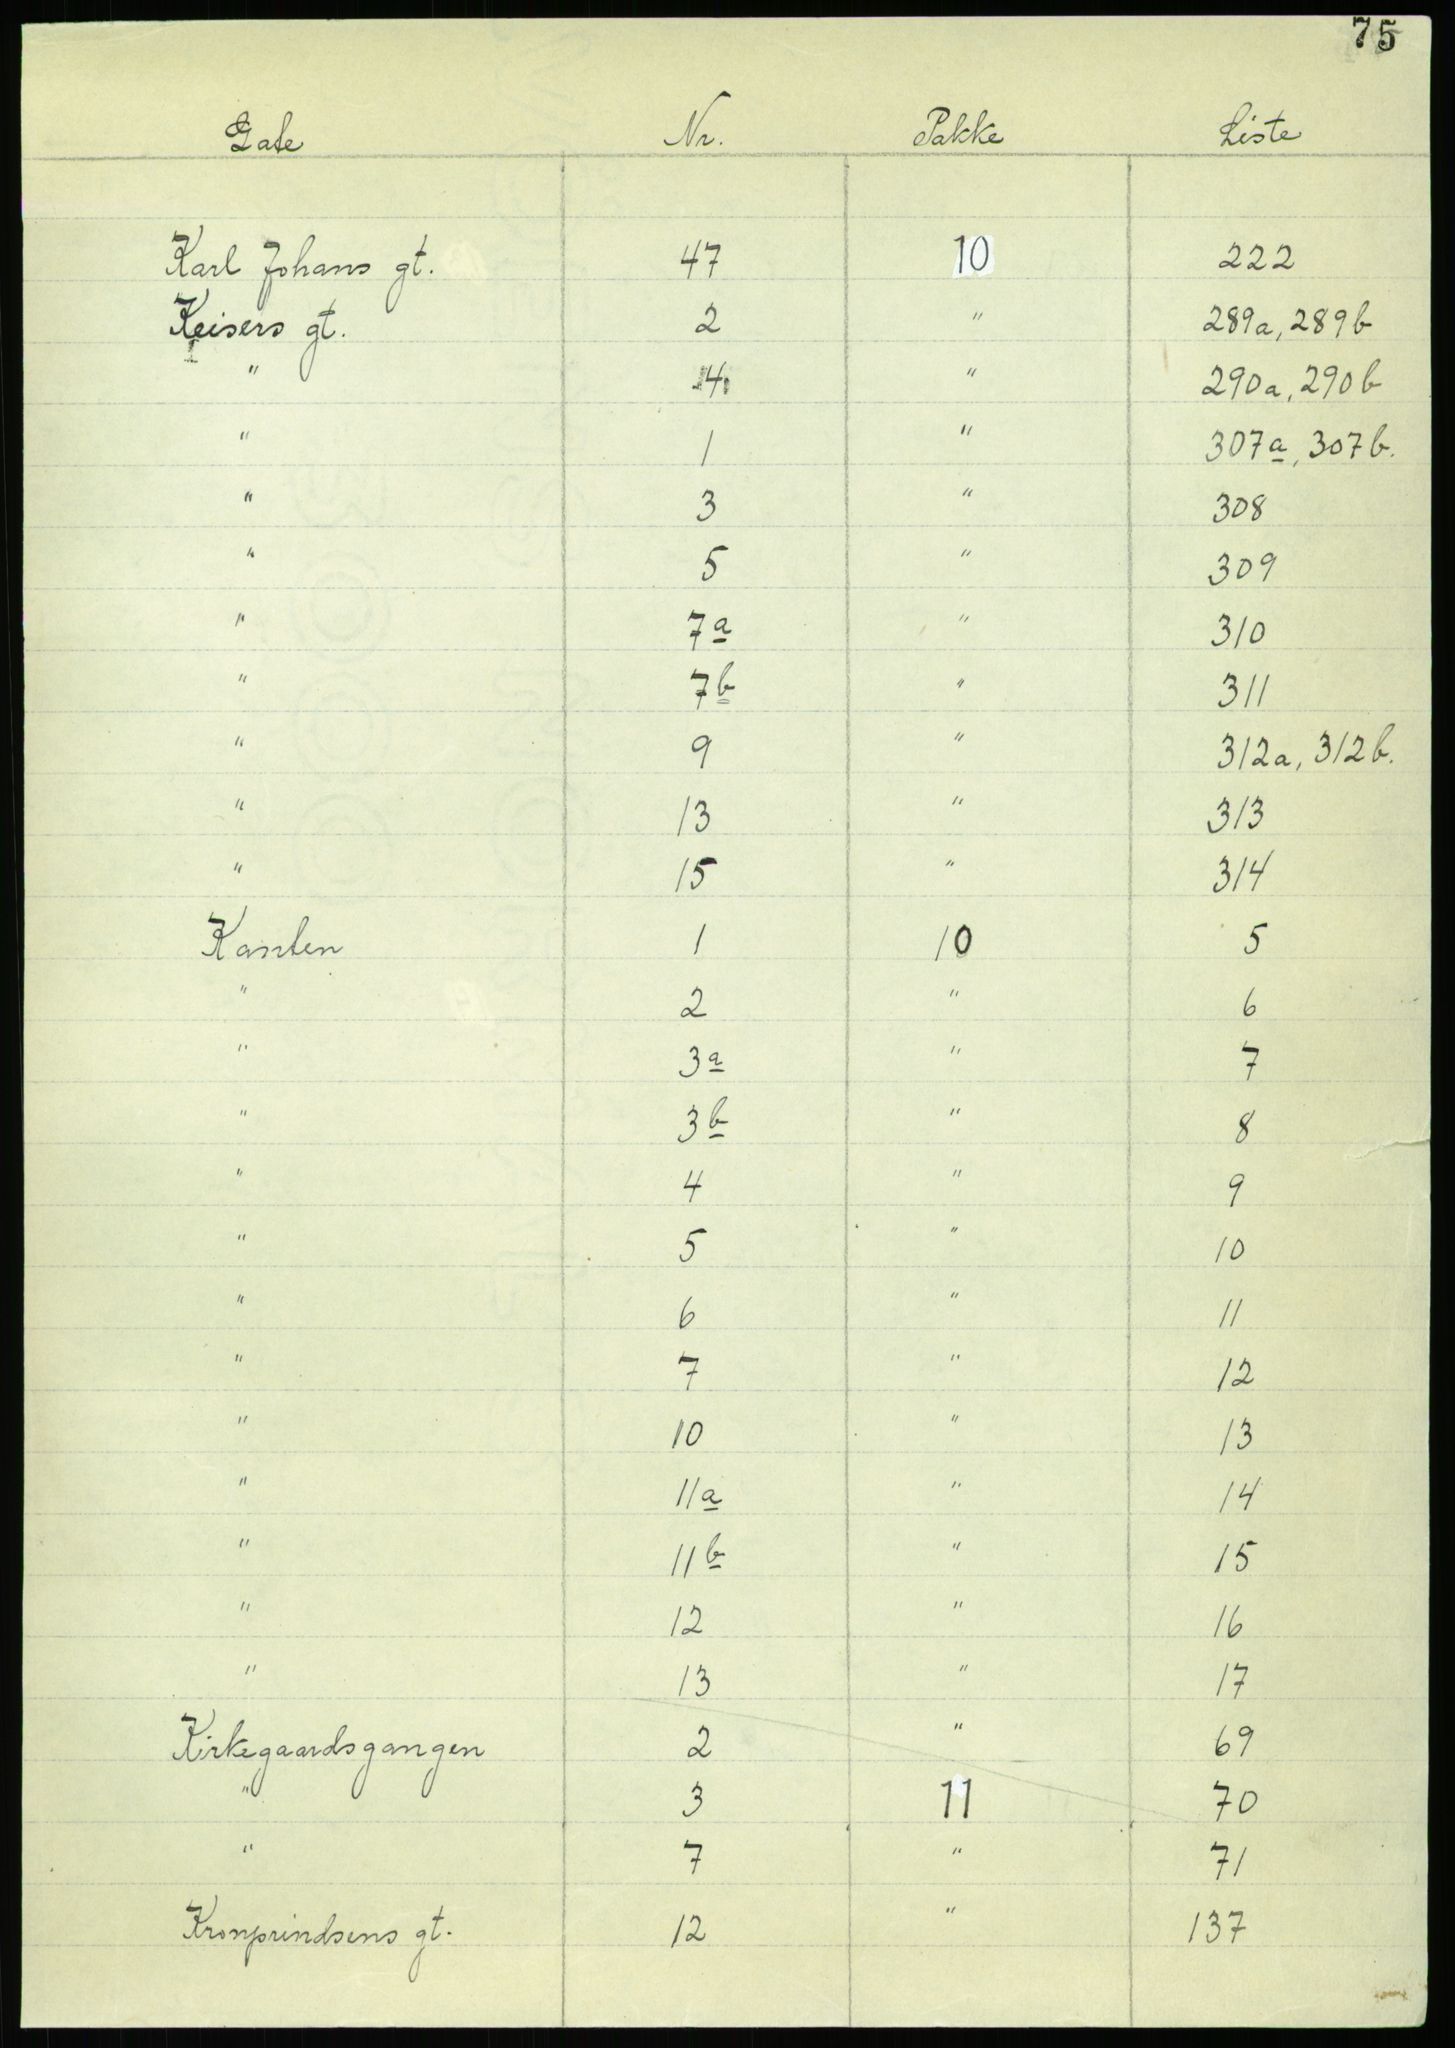 75
Gate Nr. Pakke Liste
Karl Johans gt. 47 10 222
Keisers gt. 2 " 289a, 289b
" 4 " 290a, 290b
" 1 " 307a, 307b.
" 3 " 308
" 5 " 309
" 7a " 310
" 7b " 311
" 9 " 312a, 312b.
" 13 " 313
" 15 " 314
Kanten 1 10 5
" 2 " 6
" 3a " 7
" 3b " 8
" 4 " 9
" 5 " 10
" 6 " 11
" 7 " 12
" 10 " 13
" 11a " 14
" 11b " 15
" 12 " 16
" 13 " 17
Kirkegaardsgangen 2 " 69
" 3 11 70
" 7 " 71
Kronprindsens gt. 12 " 137